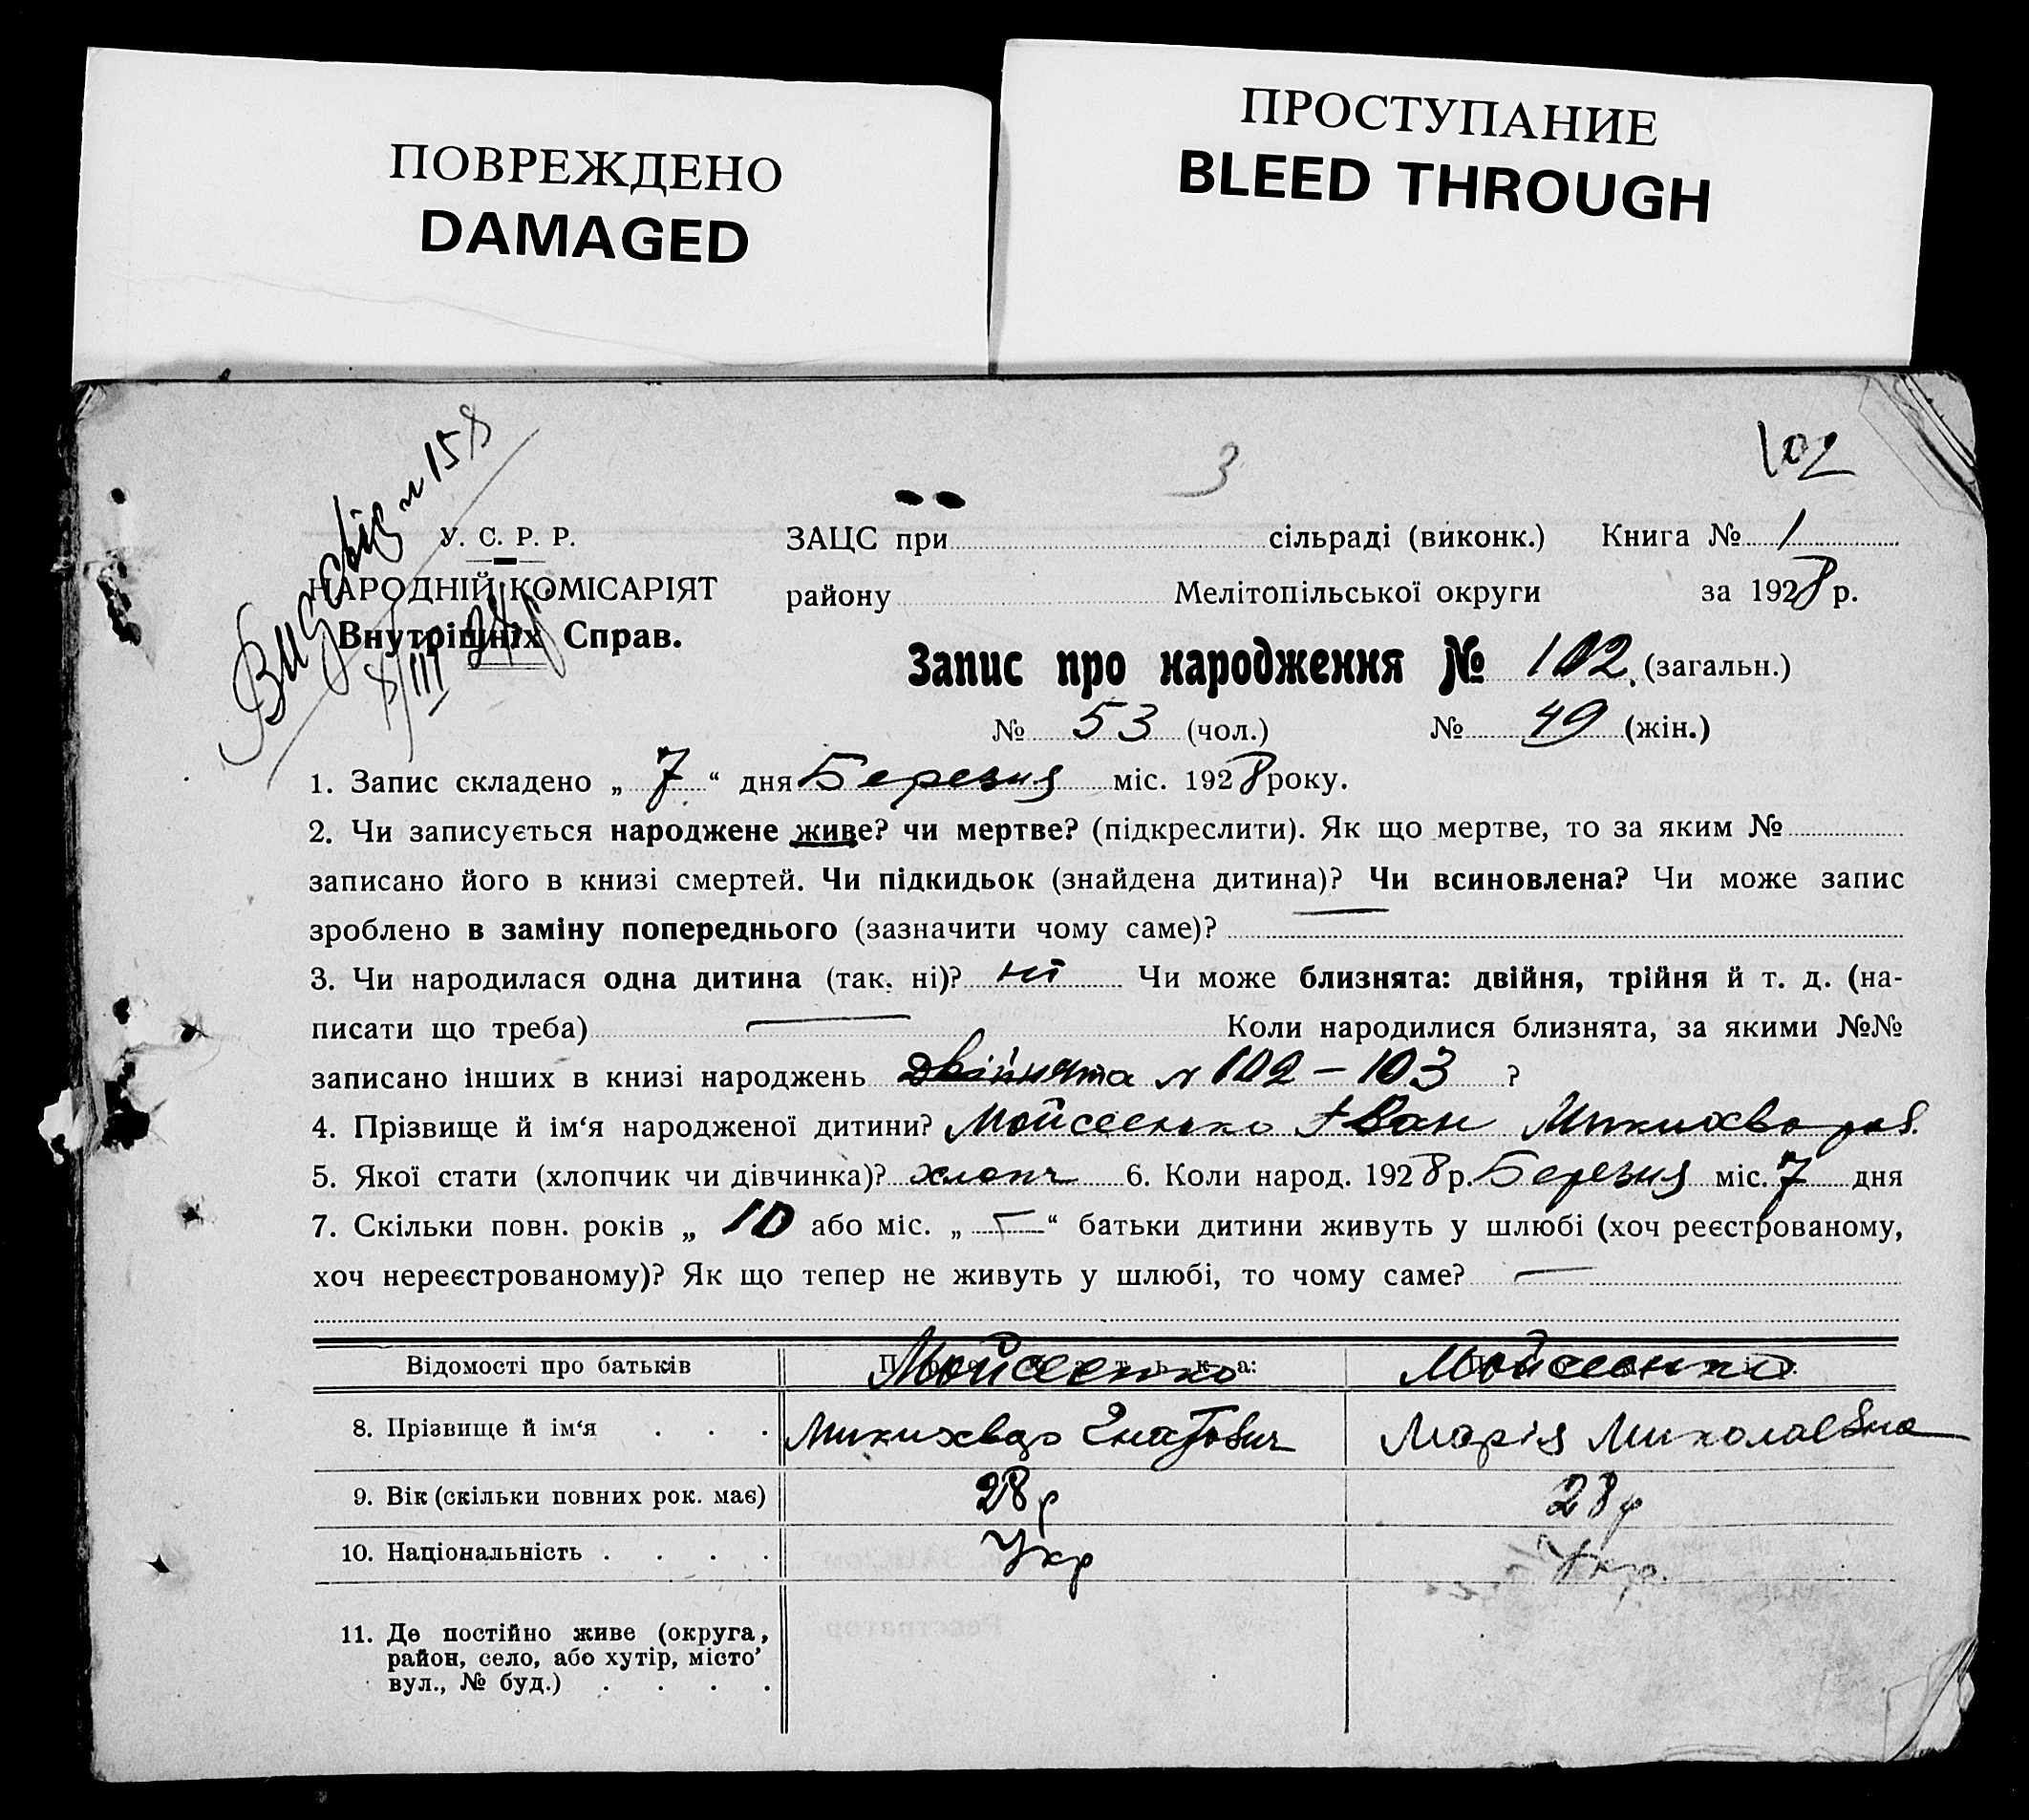 ПОВРЕЖДЕНО
DAMAGED
ПРОСТУПАНИЕ
BLEED THROUGH
№ 158
3
102
У. С. Р. Р.
НАРОДНІЙ КОМІСАРІЯТ
Внутрішніх Справ.
ЗАЦС при сільраді (виконк.) Книга № 1
району Мелітопільської округи за 1928 р.
Запис про народження № 102 (загальн.)
№ 53 (чол.) № 49 (жін.)
1. Запис складено „ 7 “ дня Березня міс. 1928 року.
2. Чи записується народжене живе? чи мертве? (підкреслити). Як що мертве, то за яким №
записано його в книзі смертей. Чи підкидьок (знайдена дитина)? Чи всиновлена? Чи може запис
зроблено в заміну попереднього (зазначити чому саме)?
3. Чи народилася одна дитина (так, ні)? ні Чи може близнята: двійня, трійня й т. д. (на-
писати що треба) — Коли народилися близнята, за якими №№
записано інших в книзі народжень Двійнята № 102 – 103 ?
4. Прізвище й ім‘я народженої дитини? Мойсеенко Іван
5. Якої стати (хлопчик чи дівчинка)? хлопч 6. Коли народ. 1928 р. Березня міс. 7 дня
7. Скільки повн. років „ 10 або міс. „ — “ батьки дитини живуть у шлюбі (хоч реєстрованому,
хоч нереєстрованому)? Як що тепер не живуть у шлюбі, то чому саме? —
Відомості про батьків Мойсеенко Мойсеенко
8. Прізвище й ім‘я . . . Микихвор Гнатович Марія Миколаевна
9. Вік (скільки повних рок. має) 28 р 28 р
10. Національність . . . . Укр Укр.
11. Де постійно живе (округа,
район, село, або хутір, місто’
вул., № буд.) . . . .